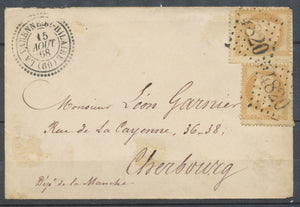 LA VARENNE-ST-HILAIRE (93)
15
AOUT
68
1820
1820
Monsieur Léon Garnier
Rue de la Cayenne, 36-38,
Cherbourg
Dépt de la Manche